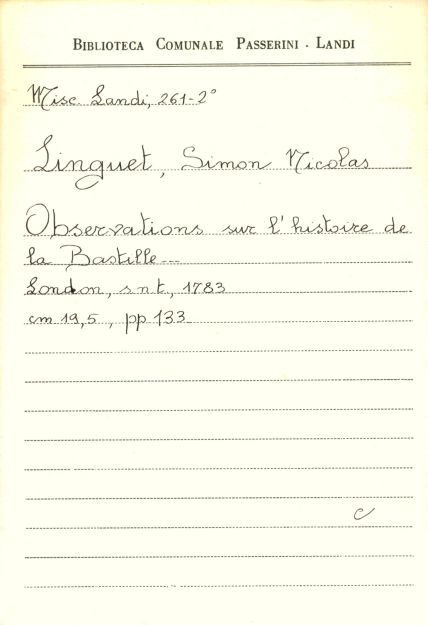 BIBLIOTECA COMUNALE PASSERINI - LANDI
Misc. Landi, 261-2°
Linguet, Simon Nicolas
Observations sur l'histoire de
la Bastille...
London, s n t, 1783
cm 19,5, pp 133
C